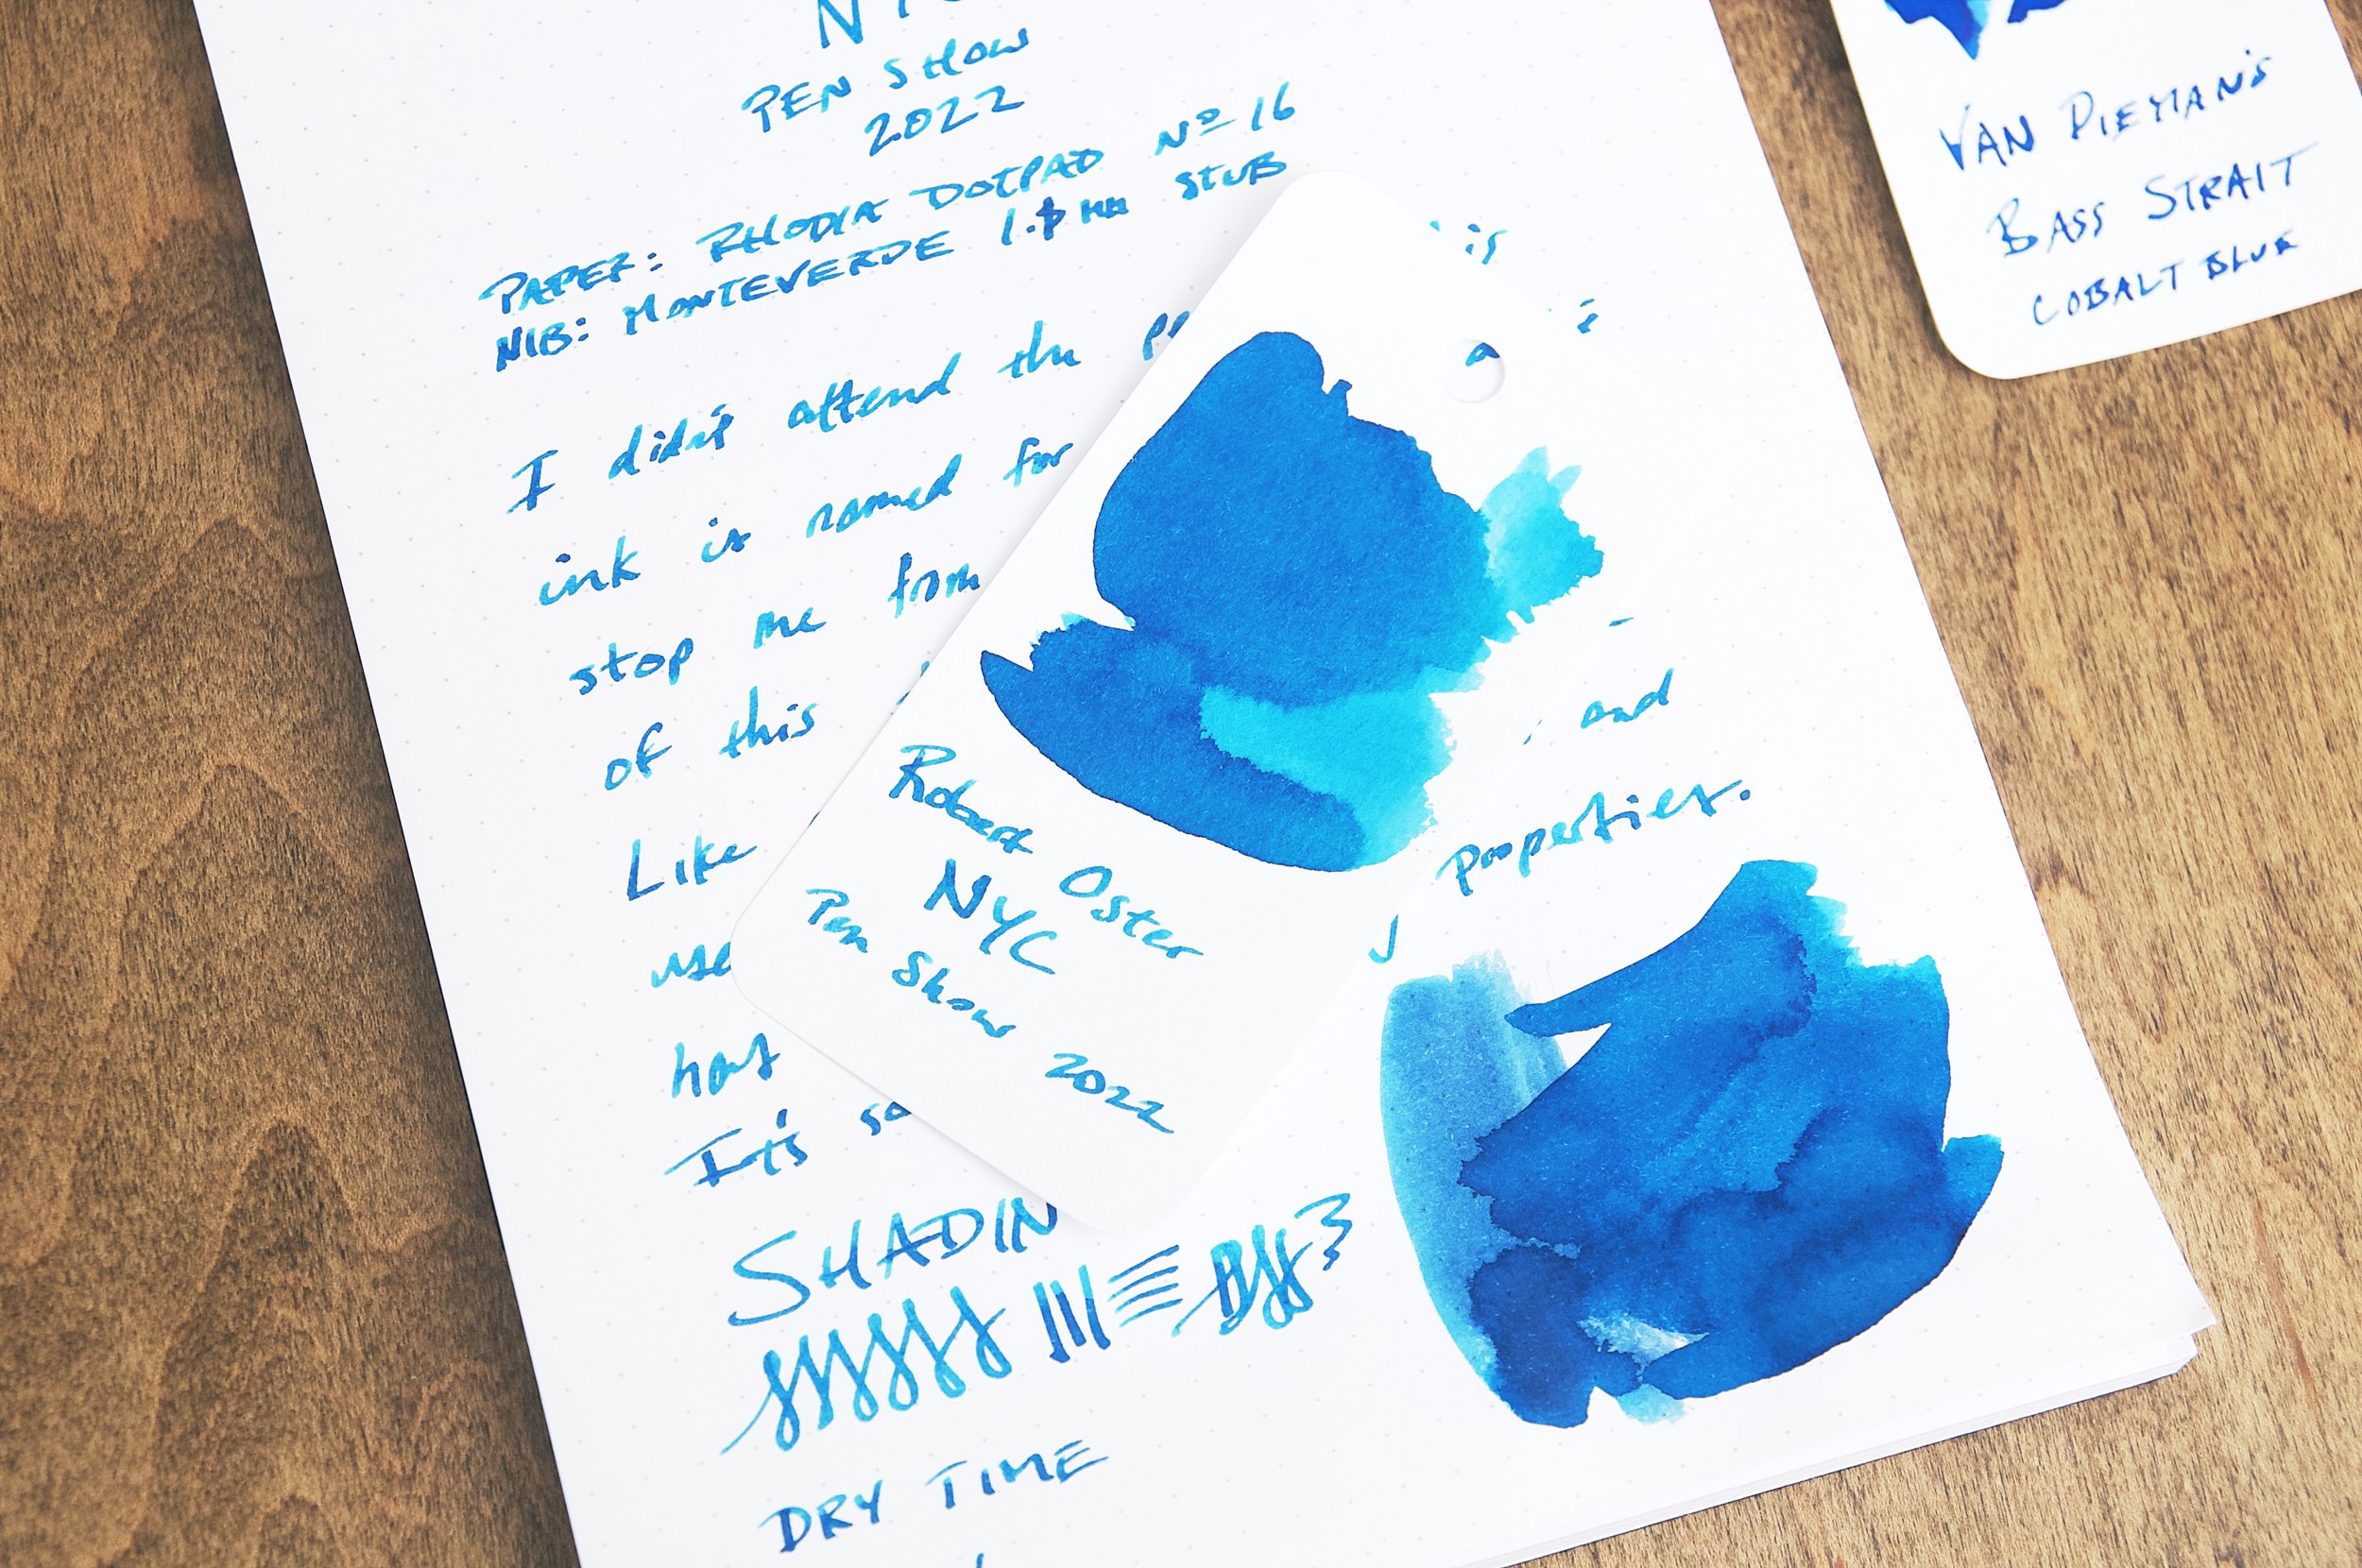 PEN SHOW
2022
PAPER: RHODIA DOTPAD Nº 16
NIB: MONTEVERDE 1.1 MM STUB
I didn't attend the is
ink is named for a
stop me from
of this and
Like properties.
use
hat
It's
SHADIN
DRY TIME
Robert Oster
NYC
Pen Show 2022
VAN DIEMAN'S
BASS STRAIT
COBALT BLUE